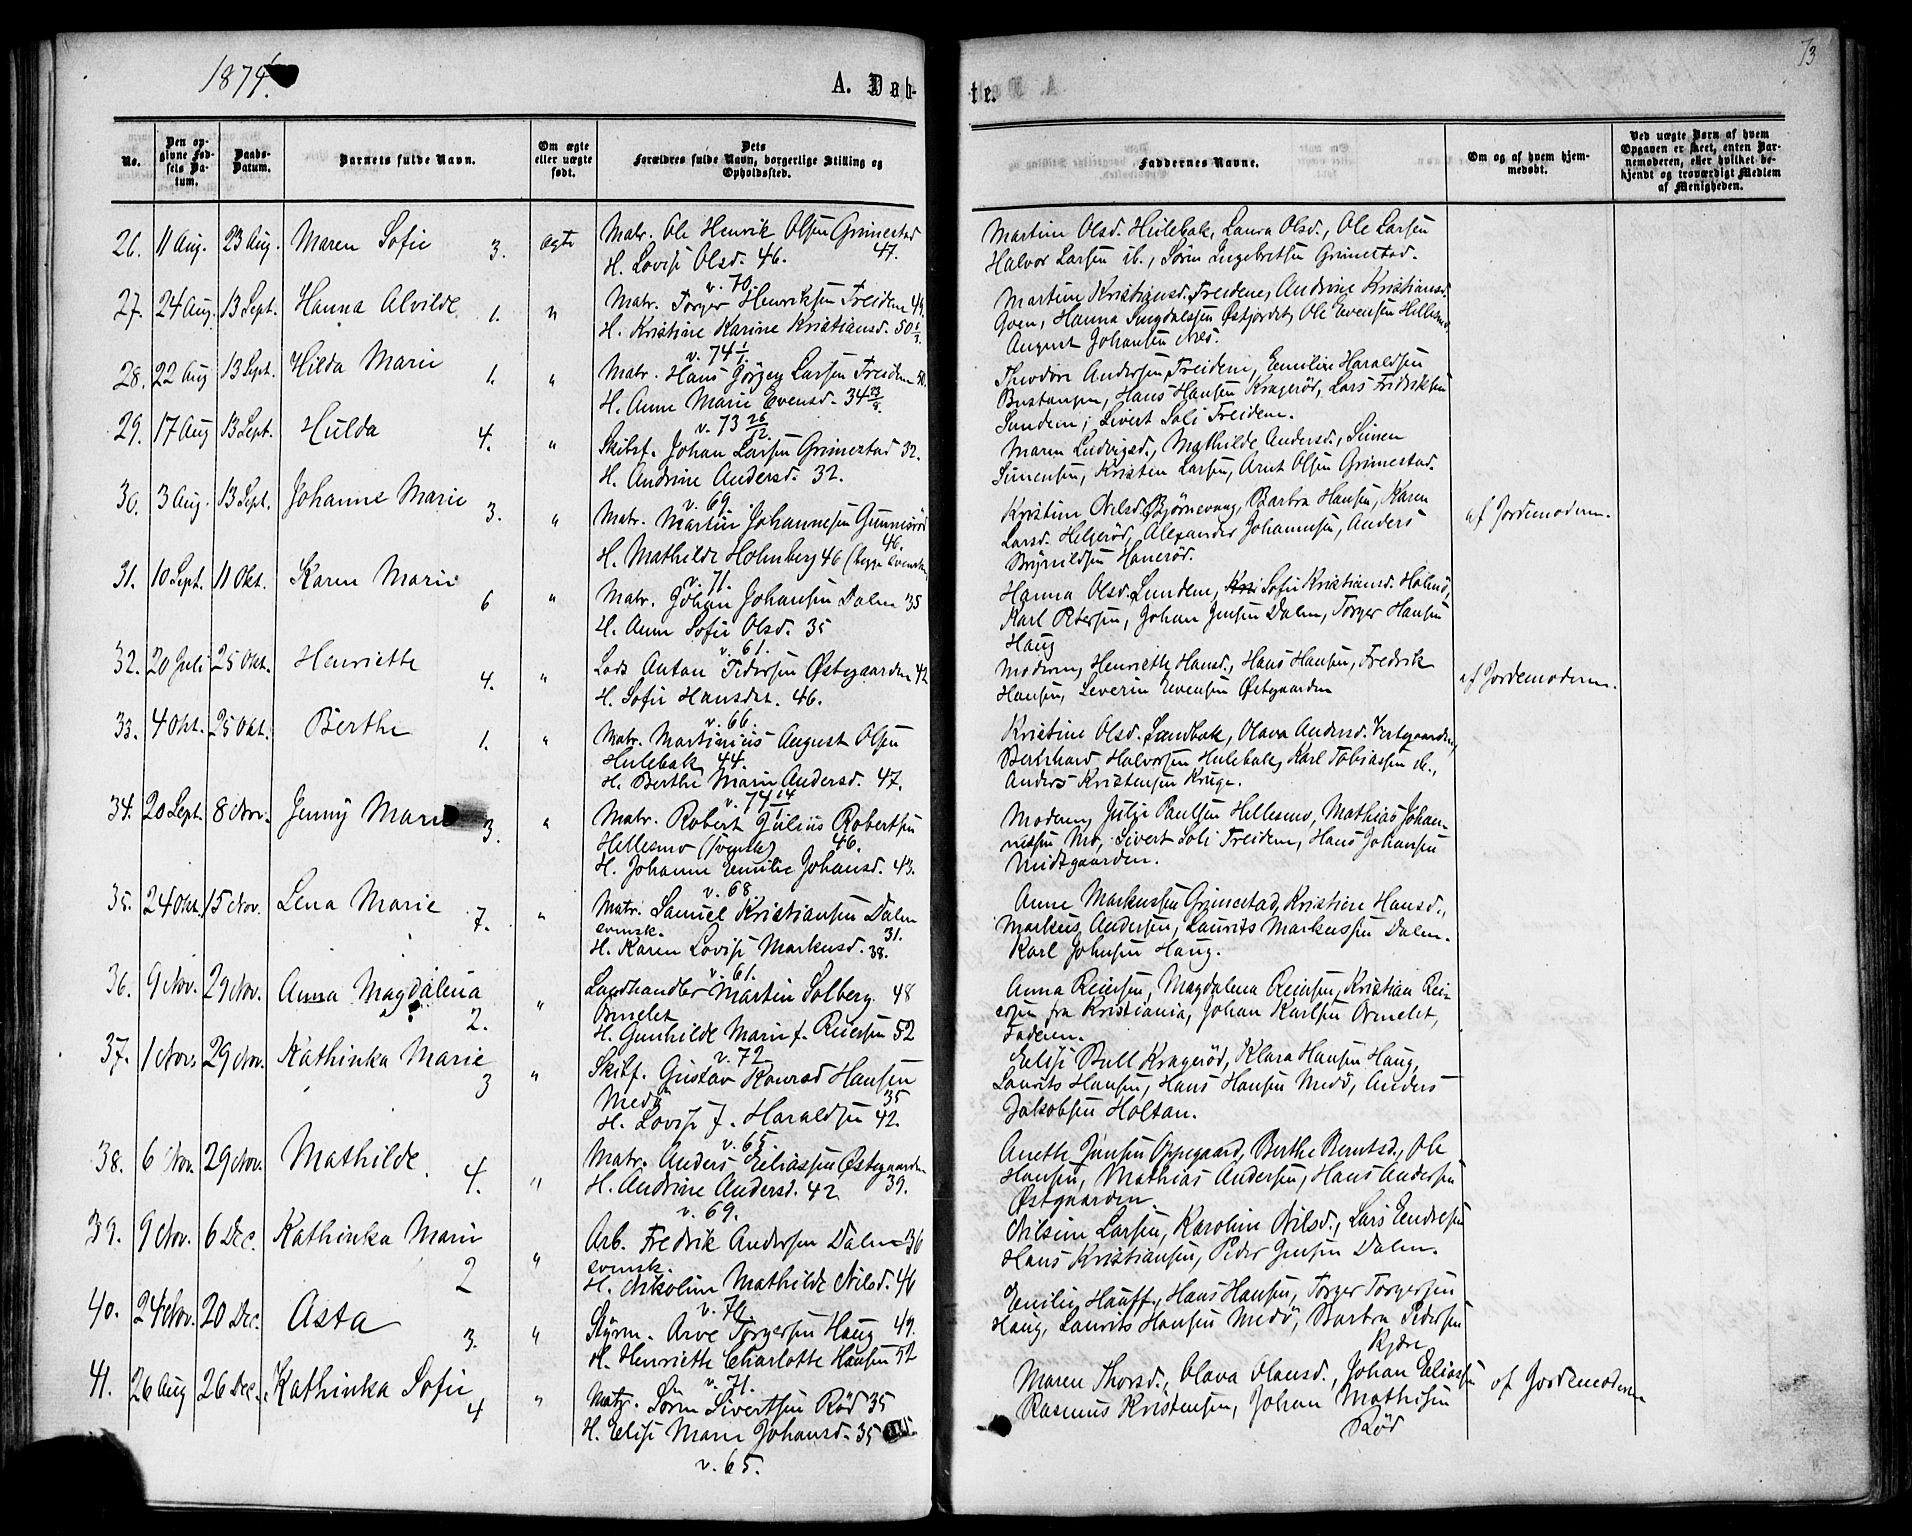 1874.
A. Døb-
te.
73
No.
Den op-
givne Fød-
sels Da-
tum.
Daabs-
Datum.
Barnets fulde Navn.
Om ægte
eller uægte
født.
Dets
Forældres fulde Navn, borgerlige Stilling og
Opholdssted.
Faddernes Navne.
Om og af hvem hjem-
medøbt.
Ved uægte Børn af hvem
Opgaven er skeet, enten Bar-
nemoderen, eller hvilket be-
kjendt og troværdigt Medlem
af Menigheden.
26. 11 Aug. 23 Aug. Maren Sofie 3. ægte
Matr. Ole Henrik Olsen Grimestad 47.
H. Lovise Olsd. 46.
v. 70.
Martine Olsd. Hulebak, Laura Olsd., Ole Larsen
Halvor Larsen ib., Søren Ingebretsen Grimestad.
27. 24 Aug. 13 Sept. Hanna Alvilde 1. "
Matr. Torger Henriksen Treidene 49.
H. Kristine Karine Kristiansd. 50
v. 74
Martine Kristiansd. Treidene, Andrine Kristiansd.
Goen, Hanna Østfjordet, Ole Evensen Hellesmo
August Johansen
28. 22 Aug 13 Sept. Hilda Marie 1. "
Matr. Hans Jørgen Larsen Treidene 50.
H. Anne Marie Evensd. 34
v. 73 26/12.
Theodor Andersen Treidene, Emilie Haraldsen
Bustangen, Hans Hansen Kragerød, Lars Fredriksen
Sundene, Sivert Soli Treidene.
29. 17 Aug 13 Sept. Hulda 4. "
Skibsf. Johan Larsen Grimestad 32.
H. Andrine Andersd. 32.
v. 69.
Maren Ludvigsd., Mathilde Andersd., Simen
Simensen, Kristen Larsen, Arnt Olsen Grimestad.
30. 3 Aug. 13 Sept. Johanne Marie 3. "
Matr. Martin Johannesen Gunnerød 46.
H. Mathilde Holmberg 46 (begge svenske)
v. 71.
Kristine Nilsd. Bjørnevaag, Barbra Hansen, Karen
Larsd. Helgerød, Alexander Johannesen, Anders
Brynildsen Hanerød.
af Jordemoderen.
31. 10 Sept. 11 Okt. Karen Marie 6 "
Matr. Johan Johansen Dalen 35
H. Anne Sofie Olsd. 35
v. 61.
Hanna Olsd. Sundene, Sofie Kristiansd. Holmø,
Karl Petersen, Johan Jensen Dalen, Torger Hansen
Haug
32. 20 Juli 25 Okt. Henriette 4. "
Lods Anton Pedersen Østgaarden 42
H. Sofie Hansdat. 46.
v. 66.
Moderen, Henriette Hansd., Hans Hansen, Fredrik
Hansen, Severin Evensen Østgaarden
af Jordemoderen.
33. 4 Okt. 25 Okt. Berthe 1. "
Matr. Martinius August Olsen
Hulebak 44.
H. Berthe Marie Andersd. 47.
v. 74
Kristine Olsd. Sandbak, Olava Andersd. Vestgaarden,
Bernhard Halvorsen Hulebak, Karl Tobiassen ib.,
Anders Kristensen Kruge.
34. 20 Sept. 8 Nov. Jenny Marie 3. "
Matr. Robert Julius Robertsen
Hellesmo (svensk) 46.
H. Johanne Emilie Johansd. 43.
v. 68
Moderen, Julje Paulsen Hellesmo, Mathias Johan-
nessen Mo, Sivert Soli Treidene, Hans Johansen
Midtgaarden.
35. 24 Okt. 15 Nov. Lena Marie 7. "
Matr. Samuel Kristiansen Dalen
svensk. 31.
H. Karen Lovise Markusd. 38.
v. 61.
Anne Markussen Grimestad, Kristine Hansd.,
Markus Andersen, Laurits Markussen Dalen.
Karl Johnsen Haug.
36. 9 Nov. 29 Nov. Anna Magdalena 2. "
Landhandler Martin Solberg 48
Ormelet
H. Gunhilde Marie f. Reiersen 52
v. 72
Anna Reiersen, Magdalena Reiersen, Kristian Rei-
ersen fra Kristiania, Johan Karlsen Ormelet,
Faderen.
37. 1 Nov. 29 Nov. Kathinka Marie 3 "
Skibf. Gustav Konrad Hansen
Medø 35
H. Lovise f. Haraldsen 42.
v. 65.
Elise Bull Kragerød, Klara Hansen Haug,
Laurits Hansen, Hans Hansen Medø, Anders
Jakobsen Holtan.
38. 6 Nov. 29 Nov. Mathilde 4. "
Matr. Anders Eliassen Østgaarden
H. Andrine Andersd. 42 39.
v. 69.
Anette Jensen Oppegaard, Berthe Berntsd., Ole
Hansen, Mathias Andersen, Hans Andersen
Østgaarden
39. 9 Nov. 6 Dec. Kathinka Marie 2 "
Arb. Fredrik Andersen Dalen 36
svensk.
H. Nikoline Mathilde Nilsd. 46
v. 70.
Nilsine Larsen, Karoline Nilsd., Lars Endresen
Hans Kristiansen, Peder Jensen Dalen.
40. 24 Nov. 20 Dec. Asta 3. "
Styrm. Arve Torgersen Haug 49.
H. Henriette Charlotte Hansen 52
v. 71.
Emilie Hauff, Hans Hansen, Torger Torgersen
Haug, Laurits Hansen Medø, Barbra Pedersen
Kjøle
41. 26 Aug 26 Dec. Kathinka Sofie 4 "
Matr. Søren Sivertsen Rød 35
H. Elise Marie Johansd. 35
v. 65.
Maren Thorsd., Olava Olausd., Johan Eliassen
Rasmus Kristensen, Johan Mathisen
Rød
af Jordemoderen